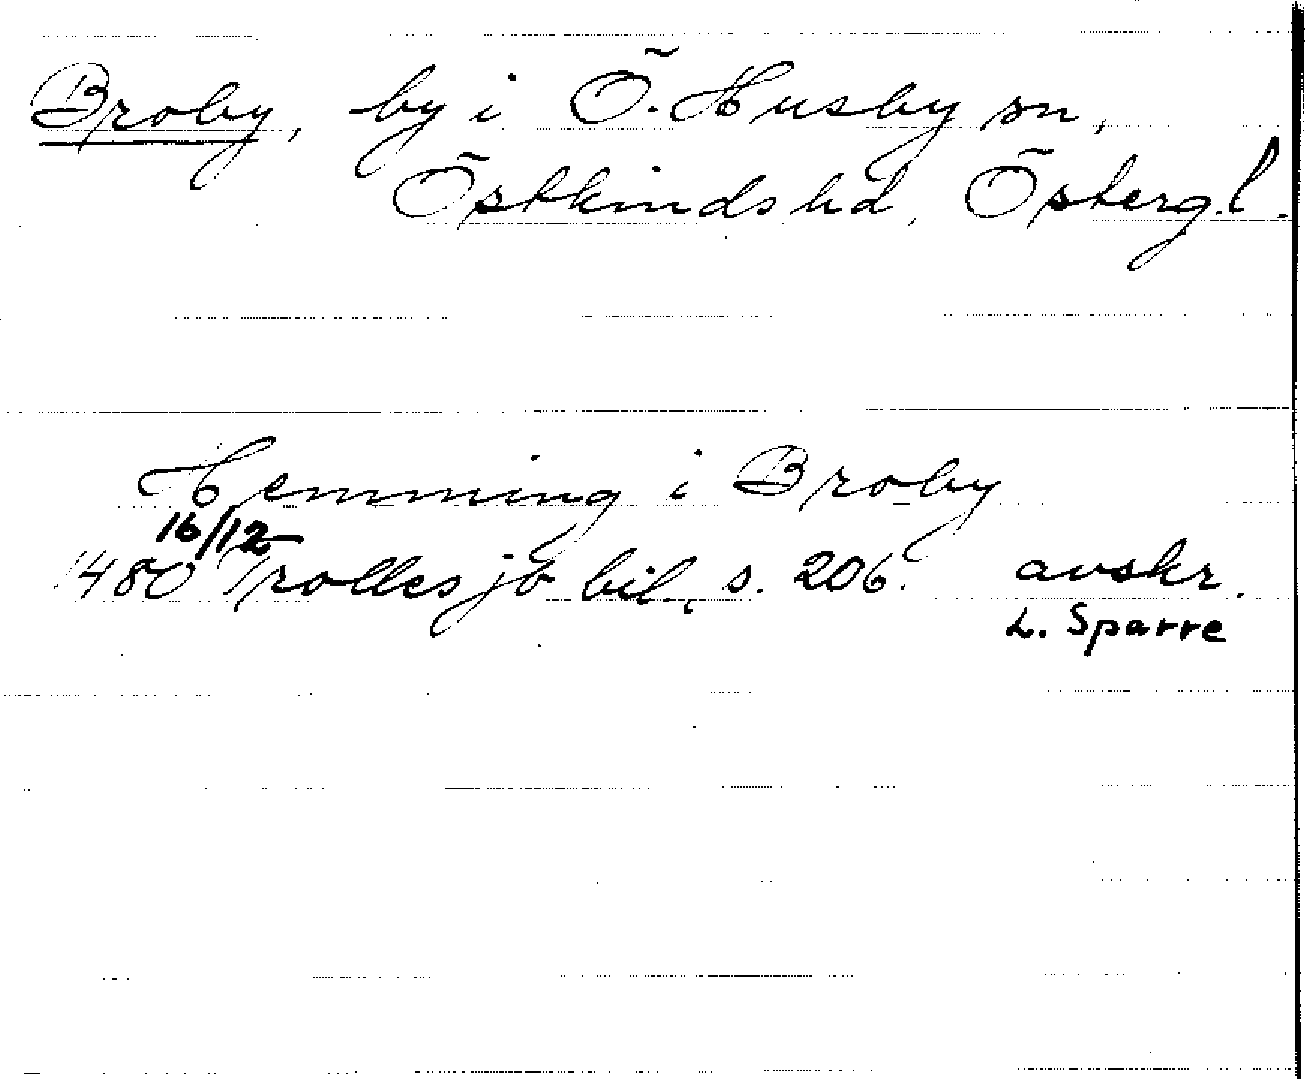 Broby, by i Ö. Husby sn,
Östkinds hd, Östergl.
Hemming i Broby
16/12
1480 Trollesjö bil, s. 206. avskr.
L. Sparre